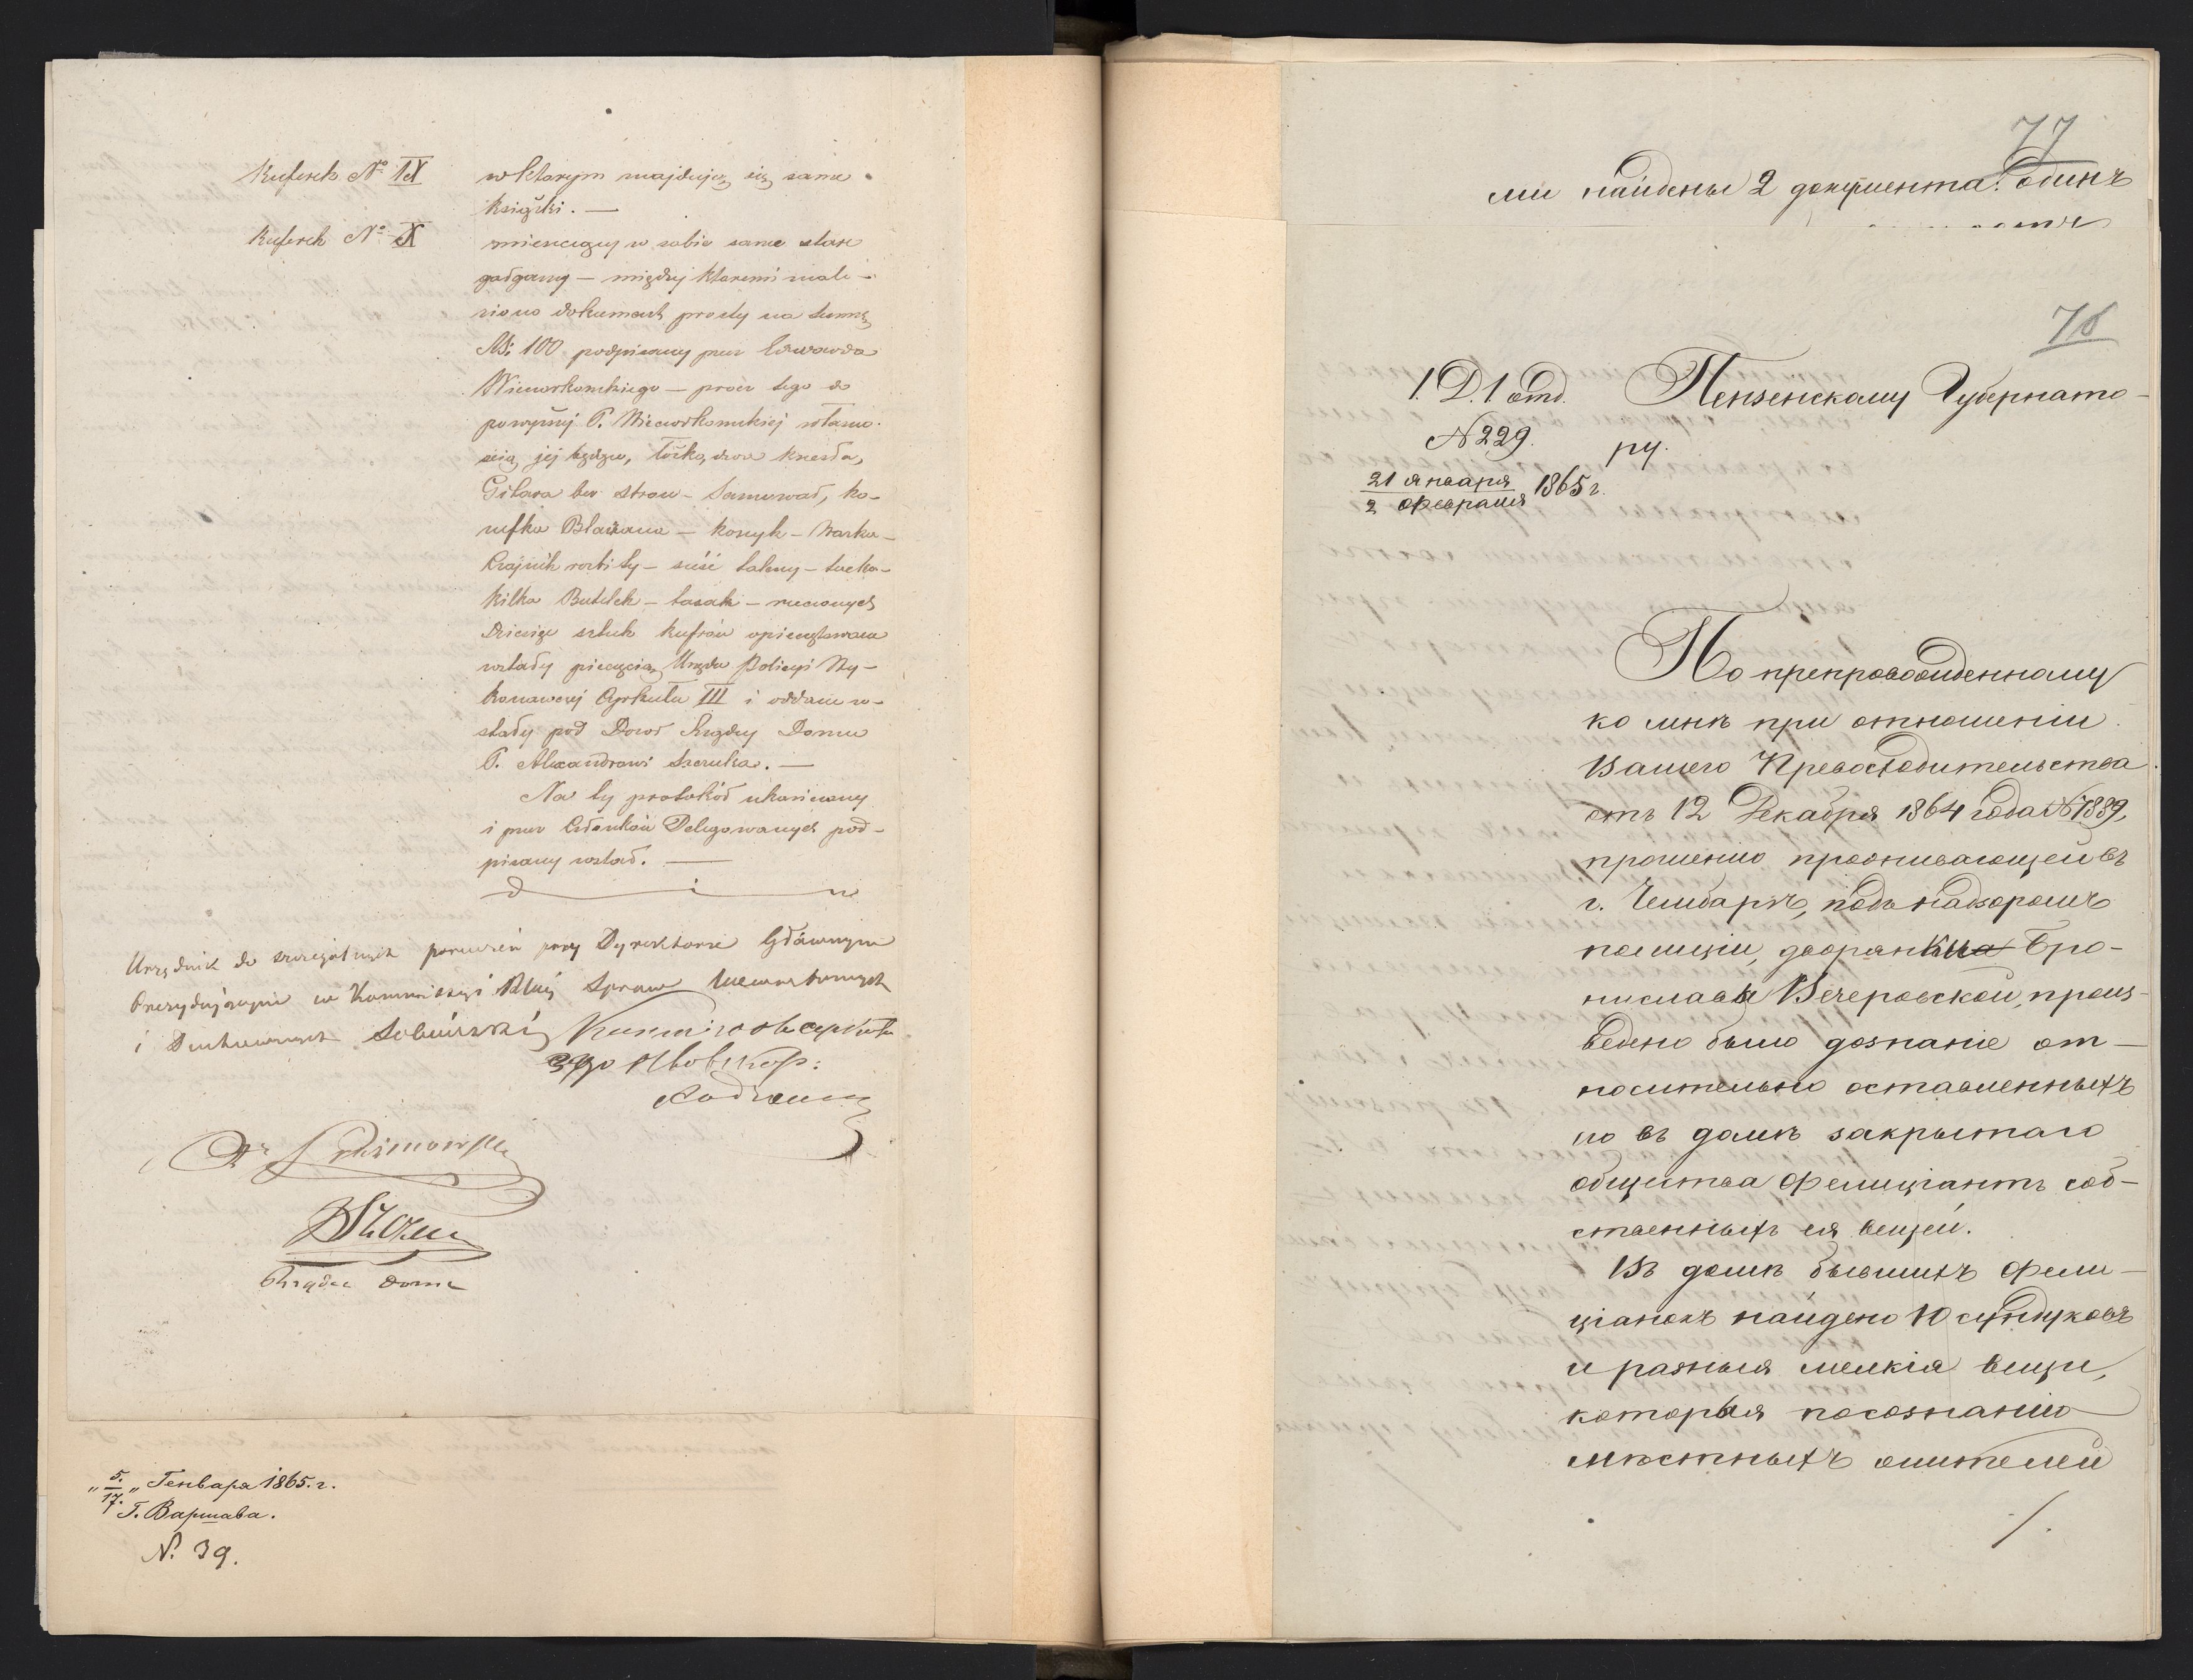 Kuferek № IX w którym znajdują się same
książki. —
Kuferek № X mieszczący w sobie same stare
gałgany — między któremi znale-
ziono dokument prosty na summę
Rs: 100 podpisany przez Edwarda
Wieczorkowskiego — prócz tego do
powyższej P. Wieczorkowskiej własno-
ścią jej będące, łóżko, dwa krzesła,
Gitara bez stron — Samowar, ko-
nefka Blaszana — koszyk — Warka-
klajnik rozbity — sześć talerzy — tacka-
kilka Butelek — tasak — rzeczonych
Dziesięć sztuk kufrów opieczętowane
zostały pieczęcią Urzędu Policyi Wy-
konawczej Cyrkułu III i oddane zo-
stały pod Dozór Rządcy Domu
P. Alexandrowi
Na tym protokół ukończony
i przez Członków Delegowanych pod-
pisany został. —
d i n
Urzędnik do szczególnych poruczeń przy Dyrektorze Głównym
Prezydującym w Kommissyi Rząd. Spraw Wewnętrznych
i Duchownych
Rządca domu
„ 5./17. „ Генваря 1865. г.
Г. Варшава.
N. 39.
77
ми найдены 2 документа: одинъ
76
1. Д. 1 отд. Пензенскому Губернато-
N 229. ру.
21 января / 2 февраля 1865 г.
По препровожденному
ко мнѣ при отношеніи
Вашего Превосходительства
отъ 12 Декабря 1864 года № 7889,
прошенію проживающей въ
г. Чембарѣ, подъ надзоромъ
полиціи, дворянки Бро-
ниславы Вечеровской, произ-
ведено было дознаніе от-
носительно оставленныхъ
ею въ домѣ закрытаго
общества Фелиціантъ соб-
ственныхъ ея вещей.
Въ домѣ бывшихъ Фели-
ціанокъ найдено 10 сундуковъ
и разныя мелкія вещи,
которыя по сознанію
мѣстныхъ жителей
/.